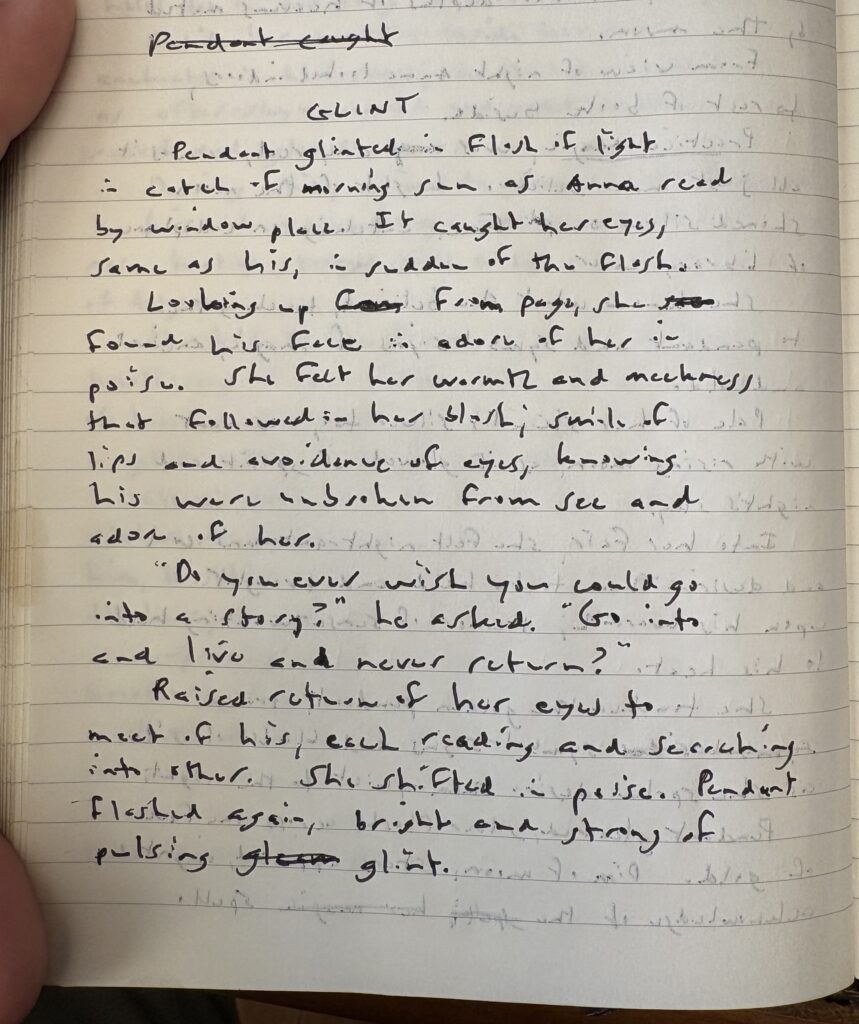 Pendant caught
GLINT
Pendant glinted in flash of light
in catch of morning sun as Anna read
by window place. It caught her eyes,
same as his, in sudden of the flash.
Looking up from page, she
found his face in adore of her in
poise. She felt her warmth and meekness
that followed in her blush; smile of
lips and avoidance of eyes, knowing
his were unbroken from see and
adore of her.
"Do you ever wish you could go
into a story?" he asked. "Go into
and live and never return?"
Raised return of her eyes to
meet of his, each reading and searching
into other. She shifted in poise. Pendant
flashed again, bright and strong of
pulsing gleam glint.